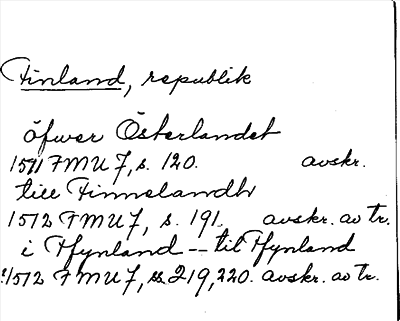 Finland, republik
öfwer Österlandet
1511 FMU 7, s. 120. avskr.
till Finnelandh
1512 FMU 7, s. 191. avskr. av tr.
i Ffynland -- til Ffynland
1512 FMU 7, ss. 219, 220. avskr. av tr.